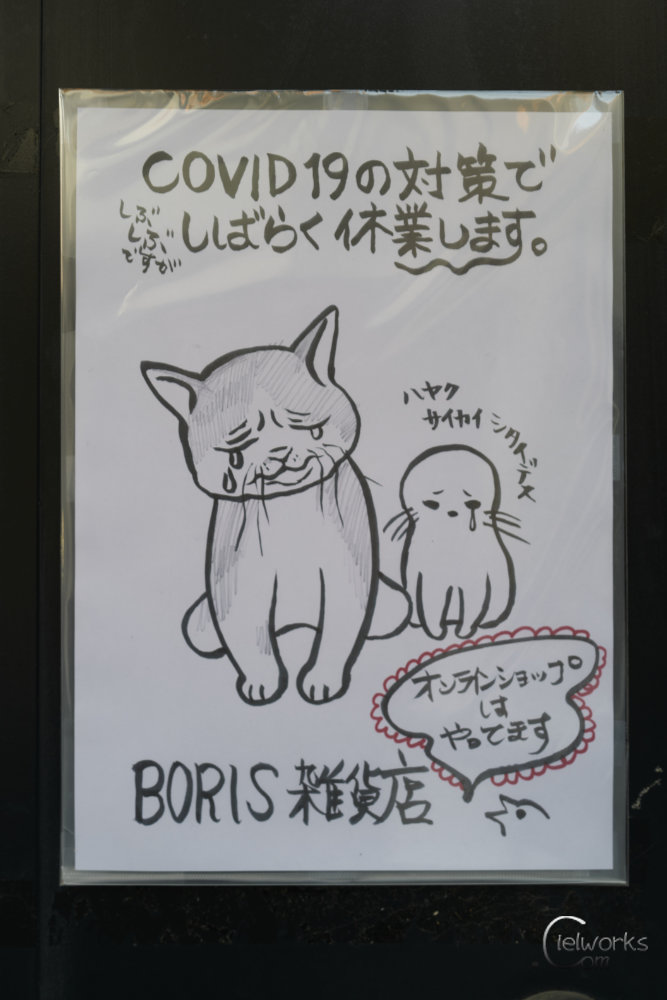 COVID19の対策で
しぶ
しぶ
ですが
しばらく休業します。
ハヤク
サイカイ
シタイデス
オンラインショップ
は
やってます
BORIS 雑貨店
Cielworks
.Com